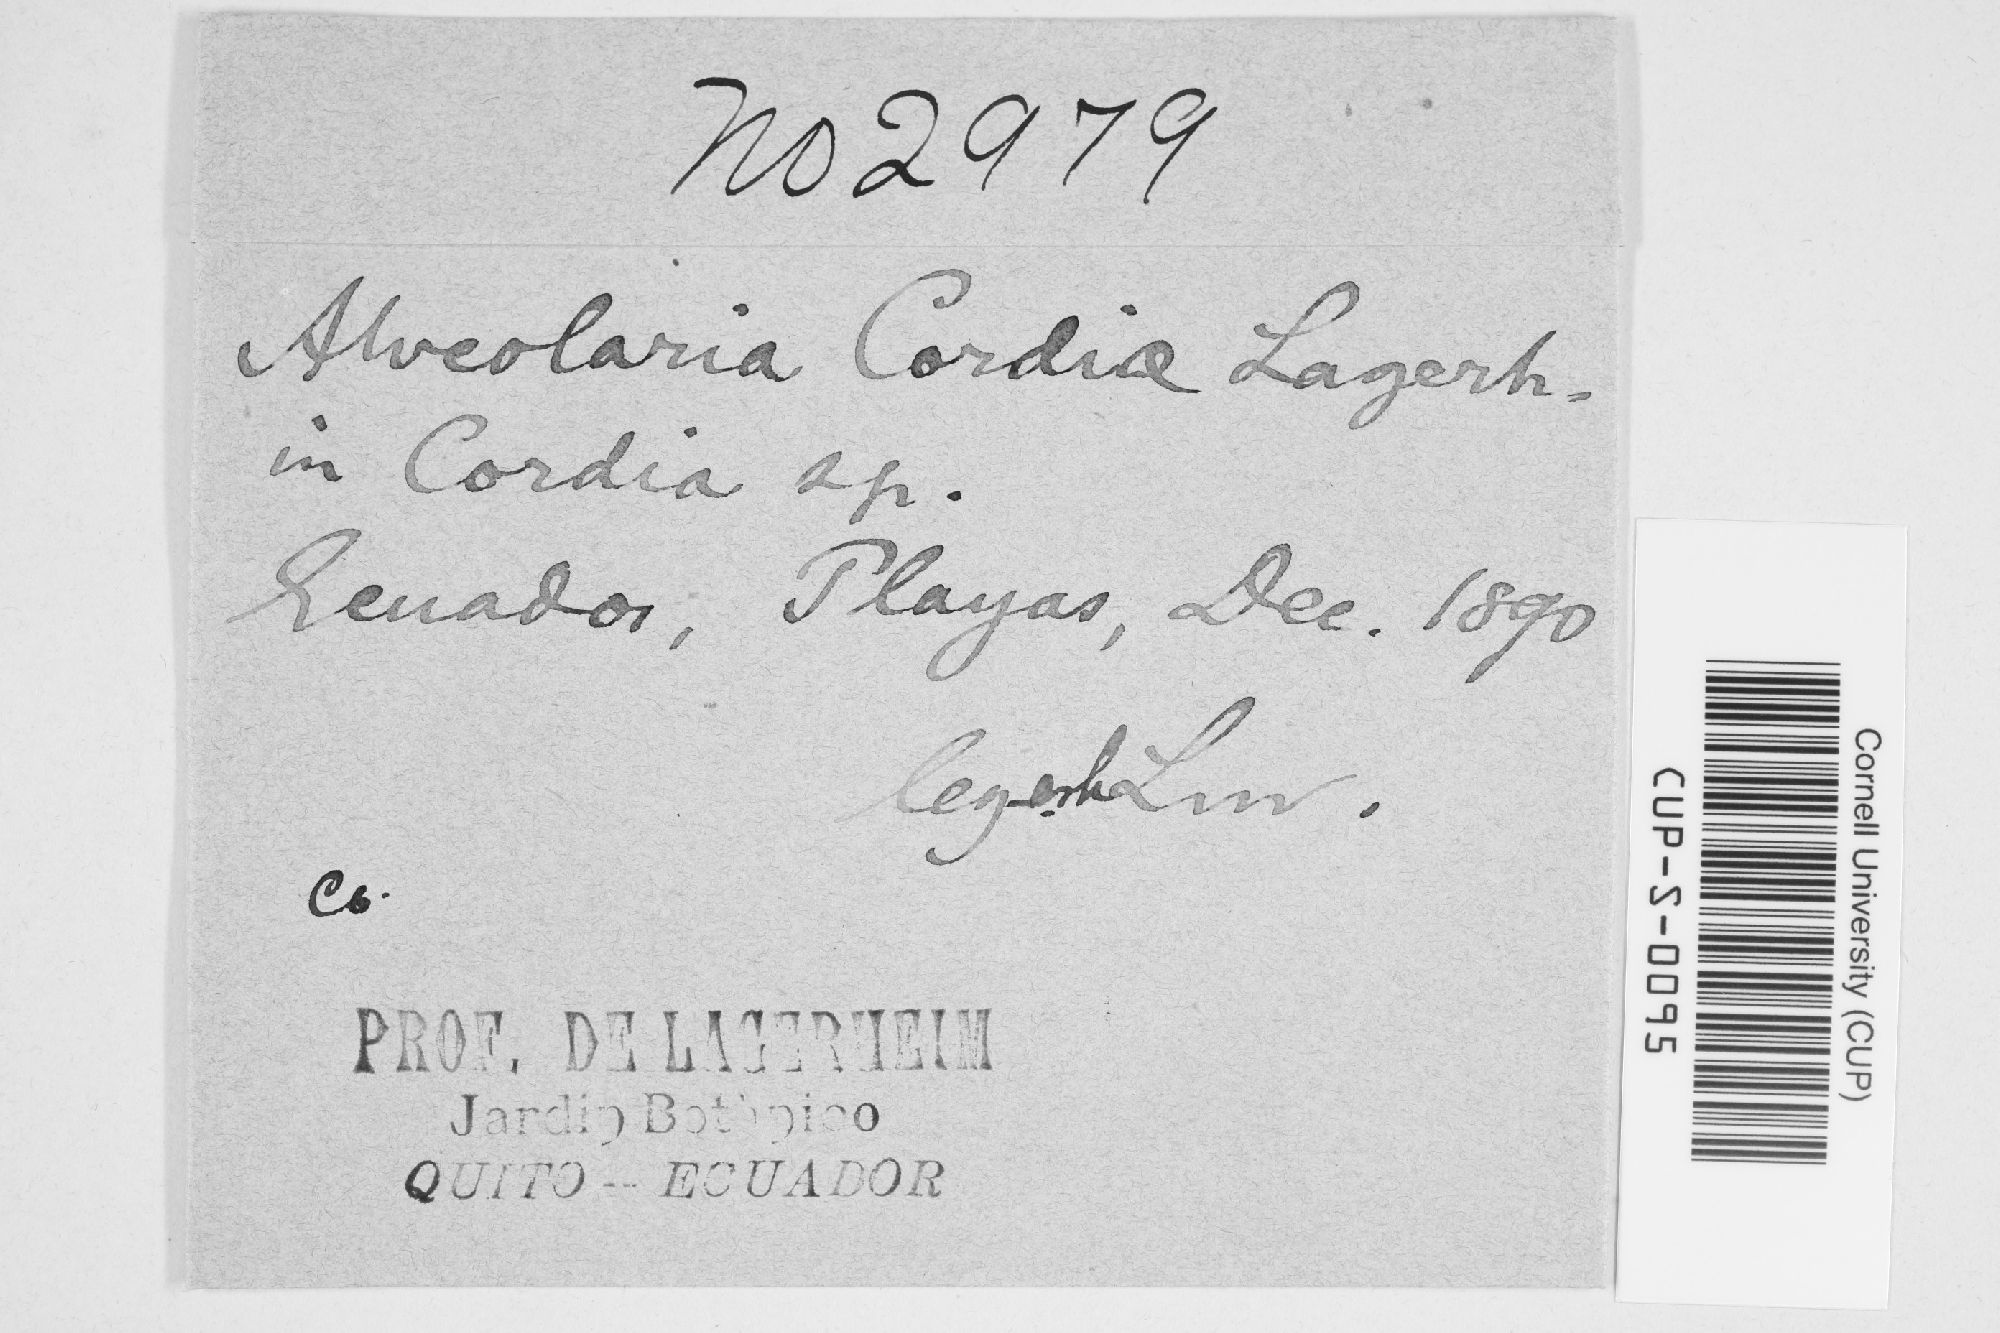 No 2979
Alveolaria Cordiæ Lagerh.
in Cordia sp.
Ecuador, Playas, Dec. 1890
leg.
Co.
PROF. DE LAGERHEIM
Jardin Botànico
QUITO -- ECUADOR
Cornell University (CUP)
CUP-S-0095